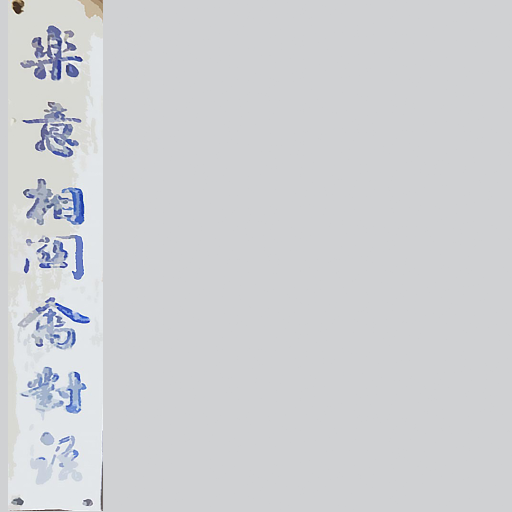 樂意相関禽對語